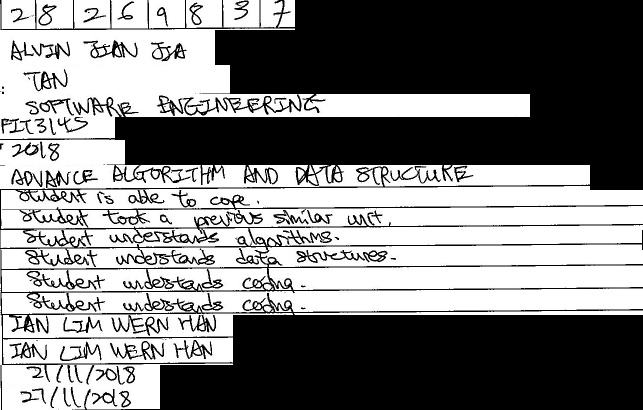 28269837
ALVIN JIAN JIA
TAN
SOFTWARE ENGINEERING
FIT3145
2018
ADVANCE ALGORITHM AND DATA STRUCTURE
Student is able to cope.
Student took a previous similar unit.
Student understands algorithms.
Student understands data structures.
Student understands coding.
Student understands coding.
IAN LIM WERN HAN
IAN LIM WERN HAN
21/11/2018
27/11/2018